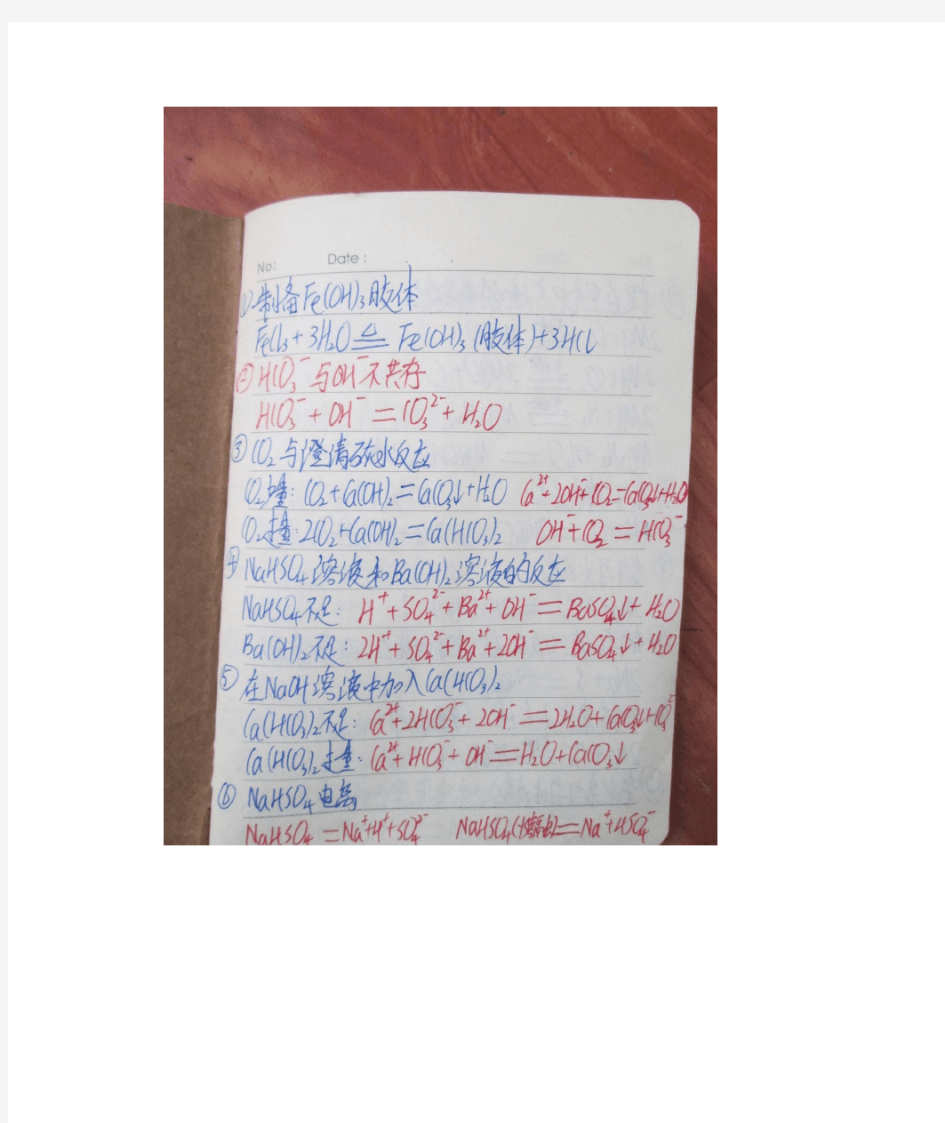 No: Date:
① 制备Fe(OH)₃胶体
FeCl₃+3H₂O ≜ Fe(OH)₃(胶体)+3HCl
② HCO₃⁻与OH⁻不共存
HCO₃⁻+OH⁻=CO₃²⁻+H₂O
③ CO₂与澄清石灰水反应
CO₂少量: CO₂+Ca(OH)₂=CaCO₃↓+H₂O Ca²⁺+2OH⁻+CO₂=CaCO₃↓+H₂O
CO₂过量: 2CO₂+Ca(OH)₂=Ca(HCO₃)₂ OH⁻+CO₂=HCO₃⁻
④ NaHSO₄溶液和Ba(OH)₂溶液的反应
NaHSO₄不足: H⁺+SO₄²⁻+Ba²⁺+OH⁻=BaSO₄↓+H₂O
Ba(OH)₂不足: 2H⁺+SO₄²⁻+Ba²⁺+2OH⁻=BaSO₄↓+H₂O
⑤ 在NaOH溶液中加入Ca(HCO₃)₂
Ca(HCO₃)₂不足: Ca²⁺+2HCO₃⁻+2OH⁻=2H₂O+CaCO₃↓+CO₃²⁻
Ca(HCO₃)₂过量: Ca²⁺+HCO₃⁻+OH⁻=H₂O+CaCO₃↓
⑥ NaHSO₄电离
NaHSO₄=Na⁺+H⁺+SO₄²⁻ NaHSO₄(熔融)=Na⁺+HSO₄⁻